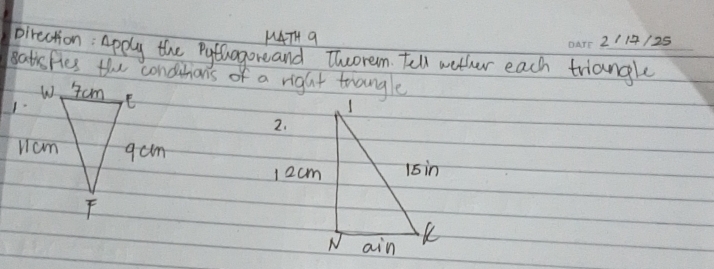 MATH 9
DATE 2/17/25
Direction: Apply the Pythagoreand Theorem. Tell wether each triangle
satisfies the conditions of a right triangle
1. W 7cm E
11cm 9cm
F
2. I
12cm 15in
N ain K